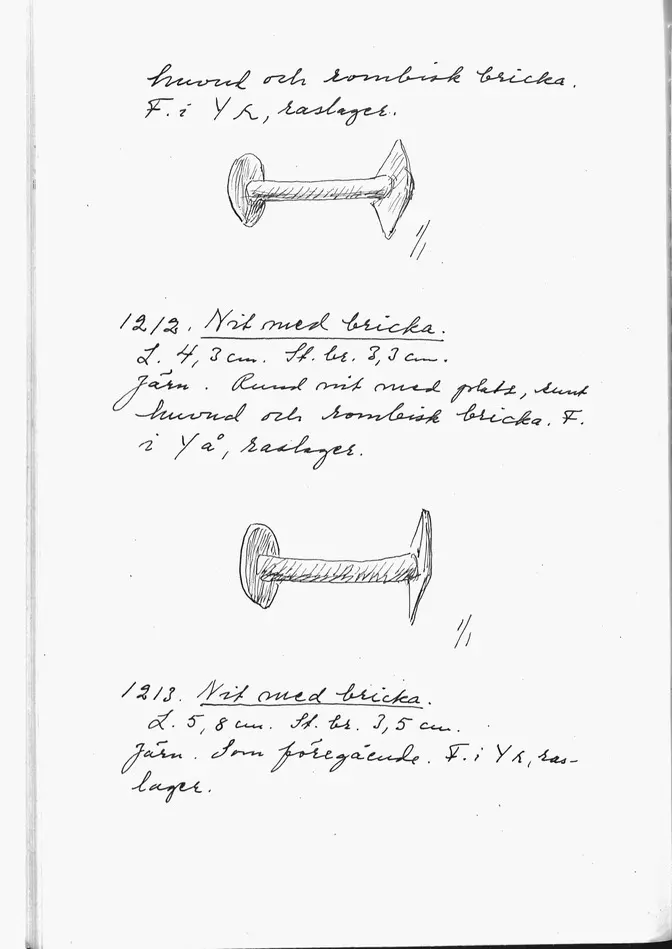 huvud och rombisk bricka.
F. i Y h, raslager.
1/1
1212. Nit med bricka.
L. 4,3 cm. St. br. 3,3 cm.
Järn. Rund nit med platt, runt
huvud och rombisk bricka. F.
i Y å, raslager.
1/1
1213. Nit med bricka.
L. 5,8 cm. St. br. 3,5 cm.
Järn. Som föregående. F. i Y h, ras-
lager.